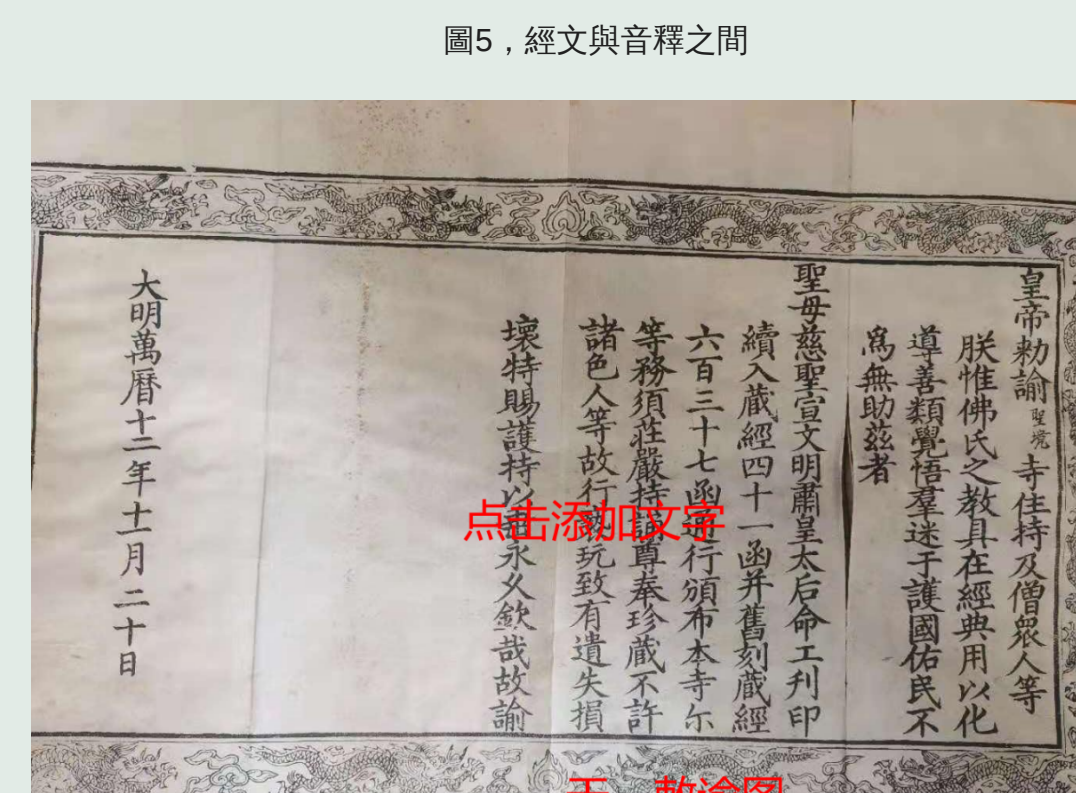 圖5，經文與音釋之間
皇帝勅諭聖境寺住持及僧衆人等
朕惟佛氏之教具在經典用以化
導善類覺悟羣迷于護國佑民不
爲無助茲者
聖母慈聖宣文明肅皇太后命工刋印
續入藏經四十一函并舊刻藏經
六百三十七函通行頒布本寺尓
等務須莊嚴持誦尊奉珍藏不許
諸色人等故行褻玩致有遺失損
壞特賜護持以垂永久欽哉故諭
大明萬曆十二年十一月二十日
点击添加文字